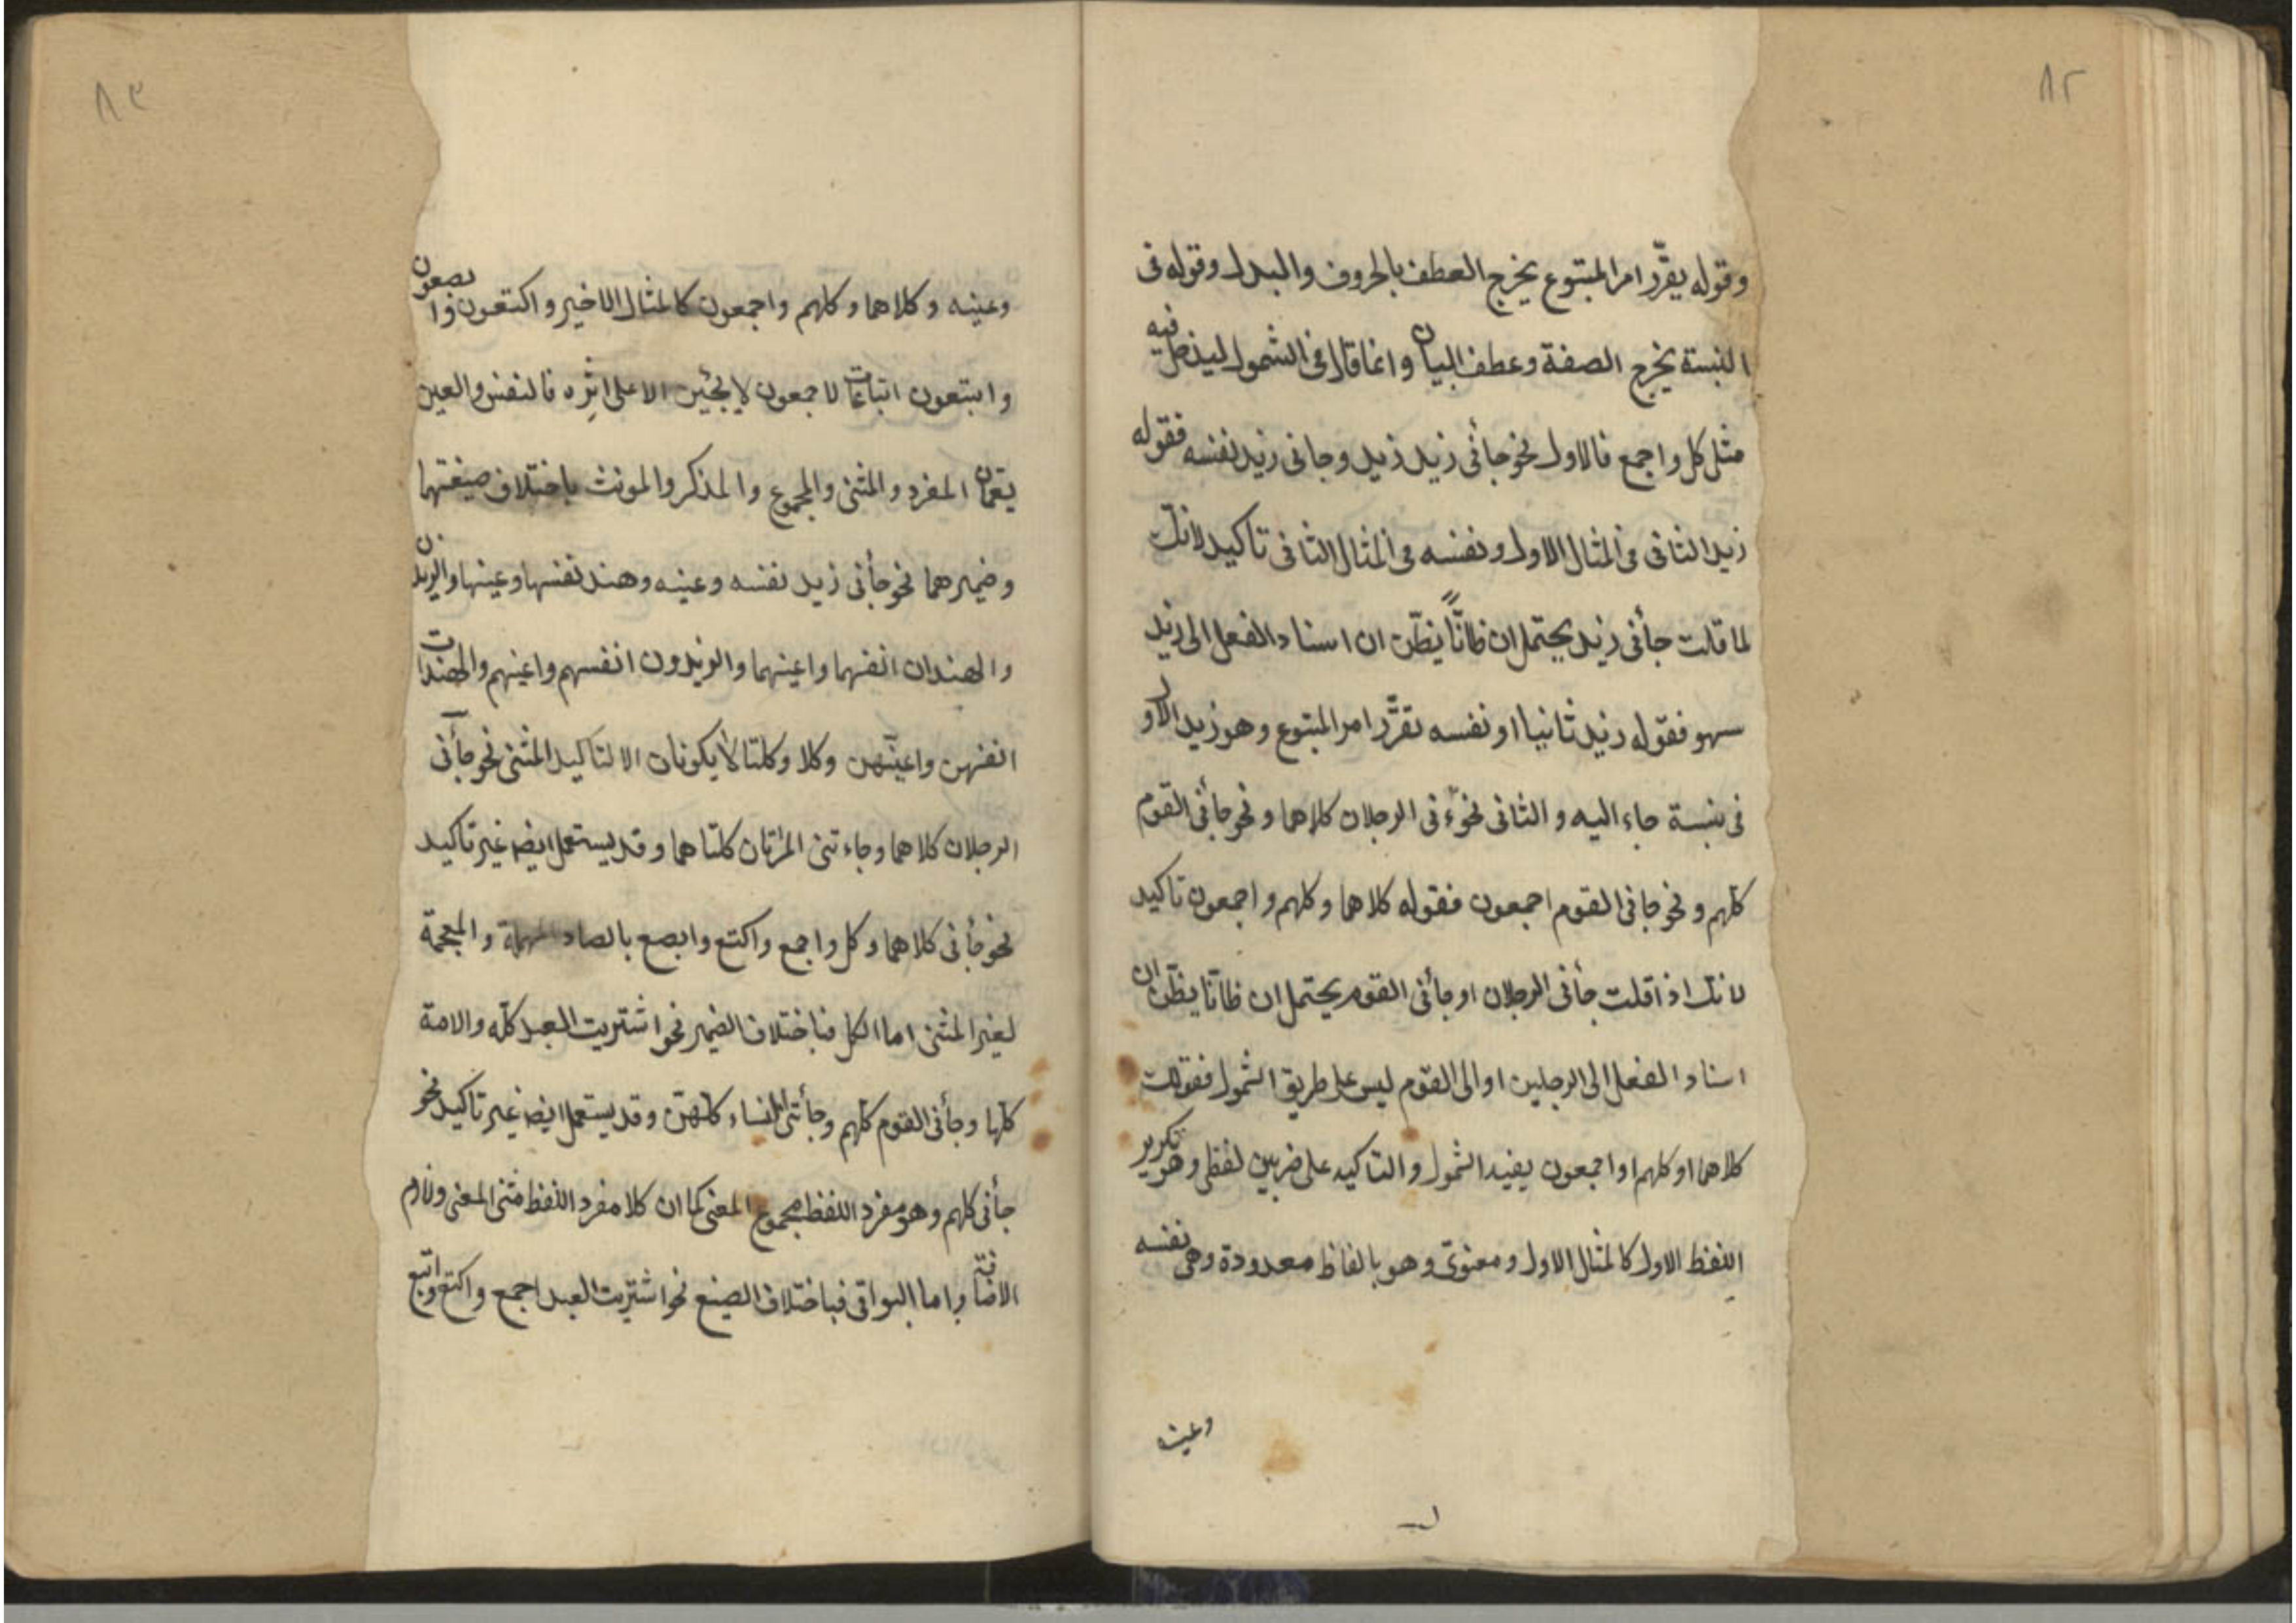 ٨٢
وقوله يقرّر امر المتبوع يخرج العطف بالحروف والبدل وقوله فى
النسبة يخرج الصفة وعطف البيان وانما قال فى الشمول ليدخل فيه
مثل كل واجمع فالاول نحو جأنى زيد زيد وجانى زيد نفسه فقوله
زيد الثانى فى المثال الاول ونفسه فى المثال الثانى تاكيد لانك
لما قلت جأنى زيد يحتمل ان ظانّاً يظنّ ان اسناد الفعل الى زيد
سهو فقوله زيد ثانيا او نفسه تقرّر امر المتبوع وهو زيد الاول
فى نسبة جاء اليه والثانى نحو فى الرجلان كلاهما ونحو جأنى القوم
كلهم ونحو جانى القوم اجمعون فقوله كلاهما وكلهم واجمعون تاكيد
لانك اذا قلت جأنى الرجلان او جأنى القوم يحتمل ان ظانّا يظنّ ان
اسناد الفعل الى الرجلين او الى القوم ليس على طريق الشمول فقولك
كلاهما او كلهم او اجمعون يفيد الشمول والتاكيد على ضربين لفظى وهو تكرير
اللفظ الاول كالمثال الاول ومعنوىّ وهو بالفاظ معدودة وهى نفسه
وعينه
٨٣
وعينه وكلاهما وكلهم واجمعون كالمثال الاخير واكتعون وابصعون
وابتعون اتباعات لاجمعون لا يجئين الا على اثره فالنفس والعين
يعمّان المفرد والمثنى والمجموع والمذكر والمونث باختلاف صيغتهما
وضميرهما نحو جأنى زيد نفسه وعينه وهند نفسها وعينها والزيدان
والهندان انفسهما واعينهما والزيدون انفسهم واعينهم والهندات
انفسهن واعينهن وكلا وكلتا لا يكونان الا لتاكيد المثنى نحو جأنى
الرجلان كلاهما وجاءتنى المرأتان كلتاهما وقد يستعمل ايضا غير تاكيد
نحو جأنى كلاهما وكل واجمع واكتع وابصع بالصاد المهملة والمعجمة
لغير المثنى اما الكل فباختلاف الضمير نحو اشتريت العبد كلّه والامة
كلها وجأنى القوم كلهم وجأتنى النساء كلهنّ وقد يستعمل ايضا غير تاكيد نحو
جأنى كلهم وهو مفرد اللفظ مجموع المعنى كما ان كلا مفرد اللفظ مثنى المعنى ولازم
الاضافة واما البواقى فباختلاف الصيغ نحو اشتريت العبد اجمع واكتع وابتع